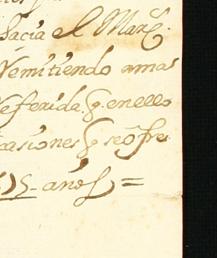 hacia el Marq.
Remitiendo a mas
referida. q. en ello
casiones q. se ofre
años =